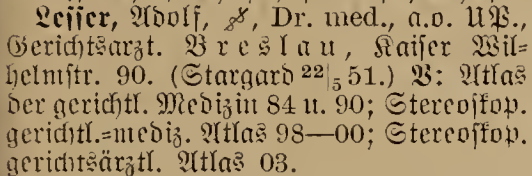 Lesser, Adolf, Dr. med., a.o. UP.,
Gerichtsarzt. Breslau, Kaiser Wil=
helmstr. 90. (Stargard 22|5 51.) V: Atlas
der gerichtl. Medizin 84 u. 90; Stereoskop.
gerichtl.=mediz. Atlas 98—00; Stereoskop.
gerichtsärztl. Atlas 03.